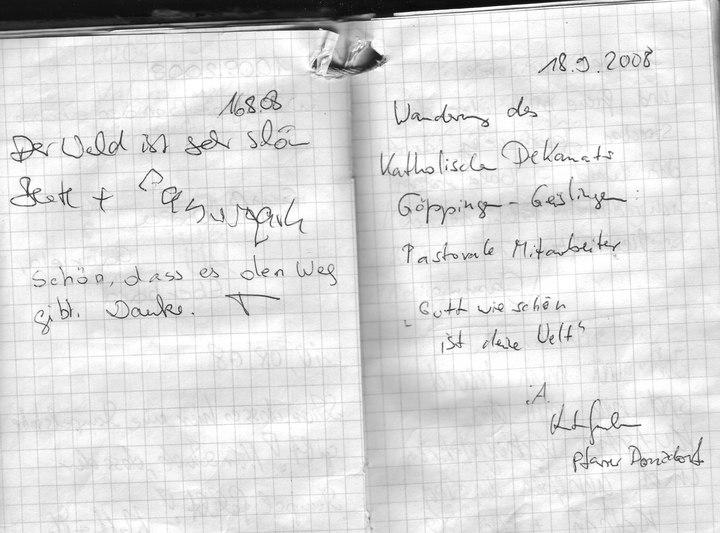 16.8.08
Der Wald ist sehr schön
+
Schön, dass es den Weg
gibt. Danke.
18.9.2008
Wanderung des
Katholische Dekanats
Göppingen-Geislingen:
Pastorale Mitarbeiter
„Gott wie schön
ist deine Welt“
i.A.
Pfarrer Donzdorf